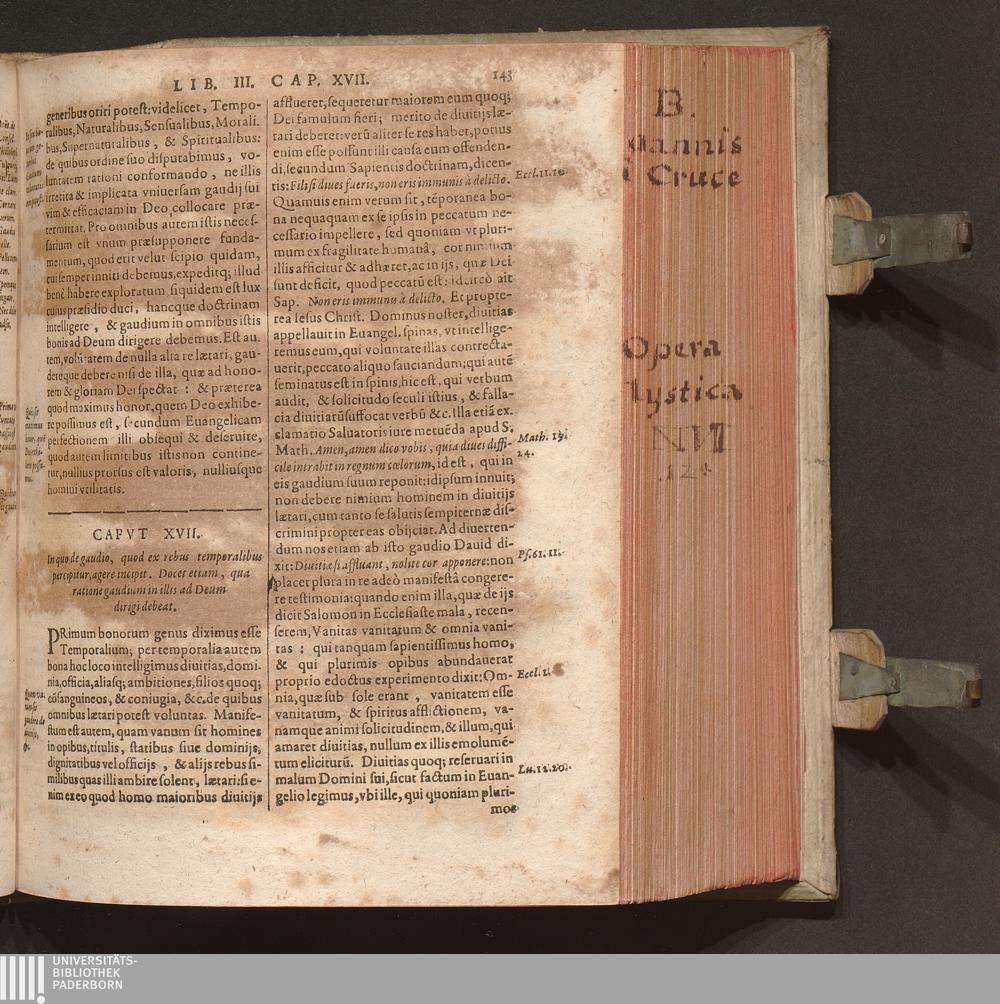 LIB. III. CAP. XVII.
143
generibus oriri potest: videlicet, Tempo-
ralibus, Naturalibus, Sensualibus, Morali-
bus, Supernaturalibus, & Spiritualibus:
de quibus ordine suo disputabimus, vo-
luntatem rationi conformando, ne illis
irretita & implicata vniuersam gaudij sui
vim & efficaciam in Deo collocare præ-
termittat. Pro omnibus autem istis neces-
sarium est vnum præsupponere funda-
mentum, quod erit velut scipio quidam,
cui semper inniti debemus, expeditq; illud
benè habere exploratum siquidem est lux
cuius præsidio duci, hancque doctrinam
intelligere, & gaudium in omnibus istis
bonis ad Deum dirigere debemus. Est au-
tem, voluntatem de nulla alia re lætari, gau-
dereque debere nisi de illa, quæ ad hono-
rem & gloriam Dei spectat: & præterea
quod maximus honor, quem Deo exhibe-
re possimus est, secundum Euangelicam
perfectionem illi obsequi & deseruire,
quod autem limitibus istis non contine-
tur, nullius prorsus est valoris, nulliusque
homini vtilitatis.
CAPVT XVII.
In quo de gaudio, quod ex rebus temporalibus
percipitur, agere incipit. Docet etiam, qua
ratione gaudium in illis ad Deum
dirigi debeat.
PRimum bonorum genus diximus esse
Temporalium; per temporalia autem
bona hoc loco intelligimus diuitias, domi-
nia, officia, aliasq; ambitiones, filios quoq;
cōsanguineos, & coniugia, &c. de quibus
omnibus lætari potest voluntas. Manife-
stum est autem, quam vanum sit homines
in opibus, titulis, statibus siue dominijs,
dignitatibus vel officijs, & alijs rebus si-
milibus quas illi ambire solent, lætari: si e-
nim ex eo quod homo maioribus diuitijs
afflueret, sequeretur maiorem eum quoq;
Dei famulum fieri; merito de diuitijs læ-
tari deberet: verū aliter se res habet, potius
enim esse possunt illi causa eum offenden-
di, secundum Sapientis doctrinam, dicen-
tis: Fili si diues fueris, non eris immunis à delicto.
Eccl. 11. 10.
Quamuis enim verum sit, tēporanea bo-
na nequaquam ex se ipsis in peccatum ne-
cessario impellere, sed quoniam vt pluri-
mum ex fragilitate humanâ, cor nimium
illis afficitur & adhæret, ac in ijs, quæ Dei
sunt deficit, quod peccatū est: idcircò ait
Sap. Non eris immunis à delicto. Et propte-
rea Iesus Christ. Dominus noster, diuitias
appellauit in Euangel. spinas, vt intellige-
remus eum, qui voluntate illas contrecta-
uerit, peccato aliquo sauciandum; qui autē
seminatus est in spinis, hic est, qui verbum
audit, & solicitudo seculi istius, & falla-
cia diuitiarū suffocat verbū &c. Illa etiā ex-
clamatio Saluatoris iure metuēda apud S.
Math. Amen, amen dico vobis, quia diues diffi-
Math. 19.
24.
cile intrabit in regnum cœlorum, id est, qui in
eis gaudium suum reponit: idipsum innuit;
non debere nimium hominem in diuitijs
lætari, cum tanto se salutis sempiternæ dis-
crimini propter eas obijciat. Ad diuerten-
dum nos etiam ab isto gaudio Dauid di-
xit: Diuitiæ si affluant, nolite cor apponere: non
Ps. 61. 11.
placet plura in re adeò manifestâ congere-
re testimonia: quando enim illa, quæ de ijs
dicit Salomon in Ecclesiaste mala, recen-
serem, Vanitas vanitatum & omnia vani-
tas: qui tanquam sapientissimus homo,
& qui plurimis opibus abundauerat
proprio edoctus experimento dixit: Om-
Eccl. 1.
nia, quæ sub sole erant, vanitatem esse
vanitatum, & spiritus afflictionem, va-
namque animi solicitudinem, & illum, qui
amaret diuitias, nullum ex illis emolumē-
tum eliciturū. Diuitias quoq; reseruari in
malum Domini sui, sicut factum in Euan-
Lu. 12. 20.
gelio legimus, vbi ille, qui quoniam pluri-
mos
B.
oannis
Cruce
Opera
Mystica
NIT
124
UNIVERSITÄTS-
BIBLIOTHEK
PADERBORN